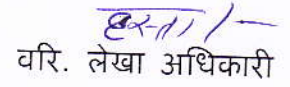 हस्ता/-
वरि. लेखा अधिकारी